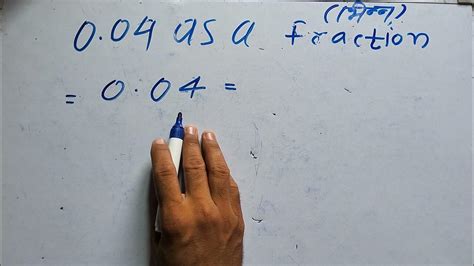 (भिन्न)
0.04 as a fraction
= 0.04 =